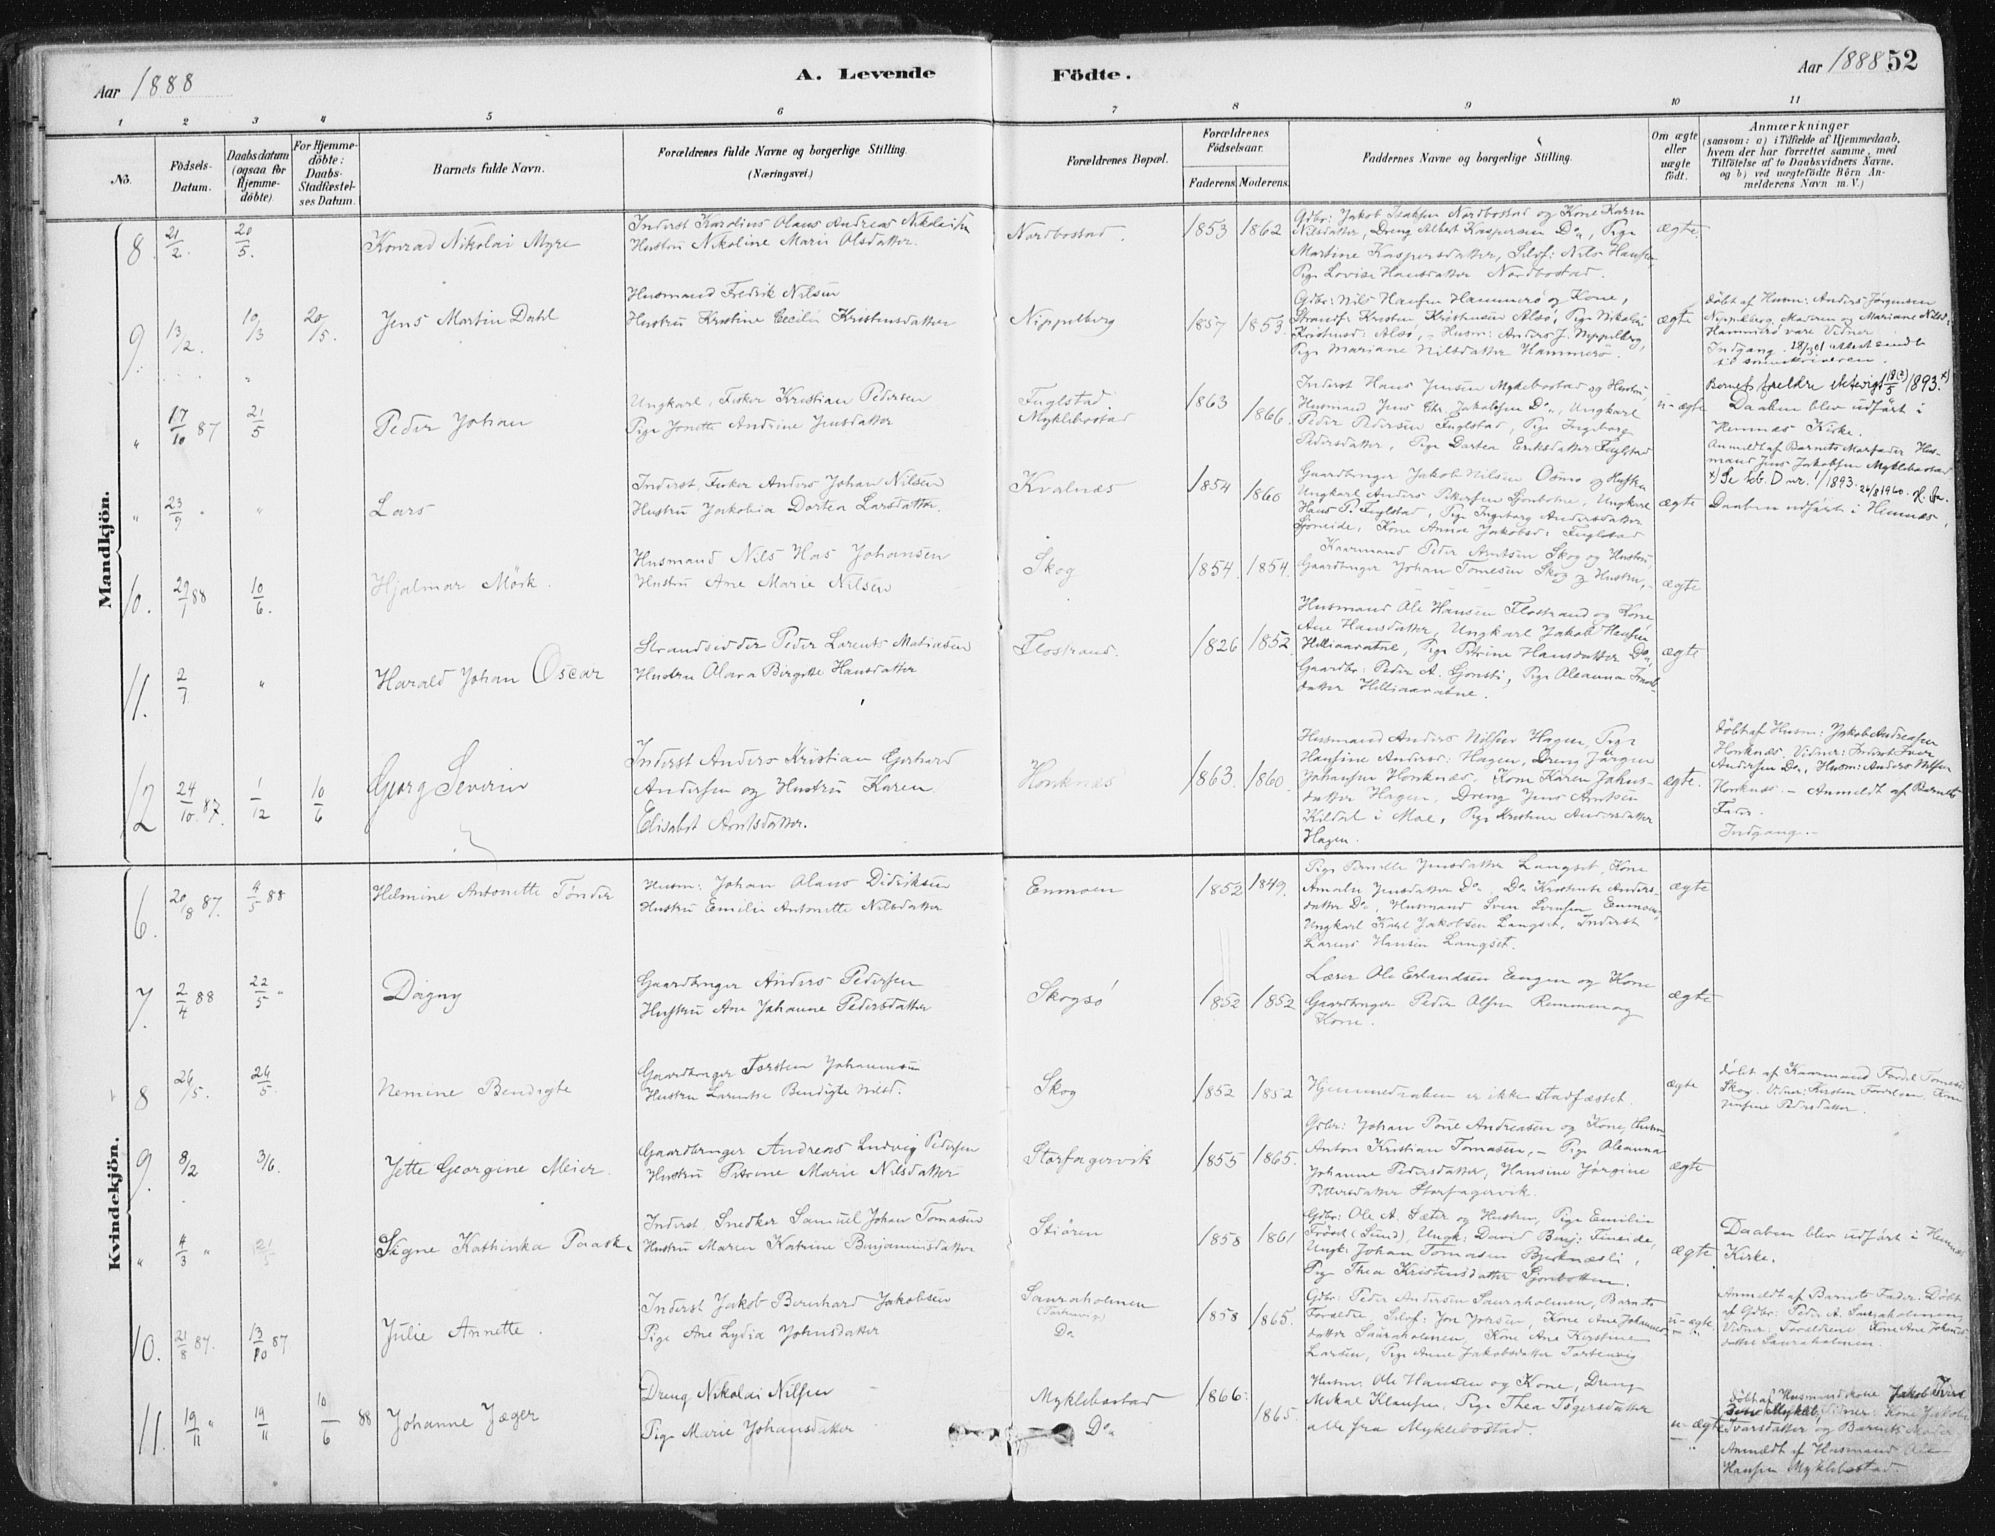 Aar 1888
A. Levende Födte.
Aar 1888 52
1 2 3 4 5 6 7 8 9 10 11
No.
Födsels-Datum.
Daabsdatum (ogsaa for Hjemme-döbte).
For Hjemme-döbte: Daabs-Stadfæstel-ses Datum.
Barnets fulde Navn.
Forældrenes fulde Navne og borgerlige Stilling.
(Næringsvei.)
Forældrenes Bopæl.
Forældrenes Födselsaar.
Faderens. Moderens.
Faddernes Navne og borgerlige Stilling.
Om ægte eller uægte födt.
Anmærkninger
(saasom: a) i Tilfælde af Hjemmedaab, hvem der har forrettet samme, med Tilföielse af to Daabsvidners Navne. og b) ved uægtefödte Börn An-melderens Navn m. V.)
Mandkjön.
8. 21/2. 20/5. Konrad Nikolai Myre
Inderst Karolius Olaus Andreas Nikolaisen
Hustru Nikoline Marie Olsdatter.
Nordbostad. 1853 1862
Gdbr: Jakob Isaksen Nordbostad og Kone Karen
Nilsdatter, Dreng Albert Kaspersen Do„, Pige
Martine Kaspersdatter, Selvf: Nils Hansen,
Pige Lovise Hansdatter Nordbostad.
ægte.
9. 13/2. 10/3 20/5. Jens Martin Dahl
Husmand Fredrik Nilsen
Hustru Kristine Cecilie Kristensdatter
Nippelberg 1857 1853.
Gdbr: Nils Hansen Hammerö og Kone,
Strandf: Kristen Kristensen Alsö, Pige Nikoline
Kristensd: Alsö, - Husm: Anders J. Nippelberg,
Pige Mariane Nilsdatter Hammerö.
ægte
døbt af Husm: Anders Jørgensen
Nippelberg, Moderen og Mariane Nilsd:
Hammerö vare Vidner.
Indgang.
„ 17/10 87 21/5 Peder Johan
Ungkarl, Fisker Kristian Pedersen
Pige Jonette Andrine Jensdatter
Fuglstad
Myklebostad 1863 1866.
Inderst Hans Jensen Myklebostad og Hustru,
Husmand Jens Chr. Jakobsen Do„, Ungkarl
Peder Pedersen Fuglstad, Pige Ingeborg
Pedersdatter, Pige Dortea Eriksdatter Fuglstad
u-ægte
Barnets foreldre ektevigt 1893. x)
Daaben blev udført i
Hemnæs Kirke.
Anmeldt af Barnets Morfader Hus-
mand Jens Jakobsen Myklebostad
x) Se kb. D nr. 1/1893.
„ 23/9 „ „ Lars
Inderst, Fisker Anders Johan Nilsen
Hustru Jakobia Dortea Larsdatter.
Kvalnæs 1854 1860
Gaardbruger Jakob Nilsen Osmo og Hustru
Ungkarl Anders Petersen Sjonbotne, Ungkarl
Hans P. Fuglstad, Pige Ingeborg Andersdatter
Sjoneide, Kone Anne Jakobsd: Fuglstad
ægte
Daaben udført i Hemnæs.
10. 29/1 88 10/6. Hjalmar Mörk.
Husmand Nils Has Johansen
Hustru Ane Marie Nilsen
Skog 1854. 1854.
Kaarmand Peder Arntsen Skog og Hustru,
Gaardbruger Johan Tomesen Skog og Hustru,
ægte
11. 2/1 „ Harald Johan Oscar
Strandsidder Peder Lorents Matiasen
Hustru Olava Birgitte Hansdatter
Flostrand. 1826 1852.
Husmand Ole Hansen Flostrand og Kone
Ane Hansdatter, Ungkarl Jakob Hansen
Helliaavatne, Pige Petrine Hansdatter Do„
Gaardbr: Peder A. Sjonsti, Pige Oleanna
datter Helliaavatne.
ægte
12 24/10. 87. 1/12 10/6 Georg Severin
Inderst Anders Kristian Gerhard
Andersen og Hustru Karen
Elisabet Arntsdatter.
Honknæs 1863. 1860.
Husmand Anders Nilsen Hagen, Pige
Hansine Andersd: Hagen, Dreng Jørgen
Johansen Honknæs, Kone Karen Johns-
datter Hagen, Dreng Jens Arntsen
Kildal i Moe, Pige Kristine Andersdatter
Hagen.
ægte.
døbt af Husm: Jakob Andreasen
Honknæs. Vidner: Inderst Iver
Andersen Do„, Husm: Anders Nilsen
Honknæs. - Anmeldt af Barnets
Fader.
Indgang. -
Kvindekjön.
6. 20/8 87. 4/5 88 Helmine Antonette Tønder
Husm: Johan Olaus Didriksen
Hustru Emilie Antonette Nilsdatter
Enmoen 1852 1849.
Pige Pernille Jensdatter Langset, Kone
Amalie Jensdatter Do„, Do„ Kristense Anders-
datter Do„, Husmand Sven Svensen Enmoen,
Ungkarl Karl Jakobsen Langset, Inderst
Lorens Hansen Langset.
ægte
7. 2/4 88 22/5 „ Dagny
Gaardbruger Anders Pedersen
Hustru Ane Johanne Pedersdatter
Skogsö 1852 1852
Lærer Ole Erlandsen Engen og Kone
Gaardbruger Peder Olsen Remmen og
Kone.
ægte
8 26/5. 26/5. Nemine Bendigte
Gaardbruger Torsten Johannesen
Hustru Larentse Bendigte Nilsd.
Skog 1852 1852
Hjemmedaaben er ikke stadfæstet.
ægte
døbt af Kaarmand Fordel Tomesen
Skog. Vidner: Kirsten Fordelsen, Kone
Jensine Pedersdatter.
9. 8/2 3/6. Jette Georgine Meier.
Gaardbruger Andreas Ludvig Pedersen
Hustru Petrine Marie Nilsdatter
Storfagervik 1855 1865.
Gdbr: Johan Pöne Andreasen og Kone, Husm
Anton Kristian Tomasen, - Pige Oleanna
Johanne Pedersdatter, Hansine Jørgine
Pettersdatter Storfagervik.
ægte
„ 4/3 „ 21/5 Signe Kathinka Paask.
Inderst, Snedker Samuel Johan Tomasen
Hustru Maren Katrine Benjaminsdatter
Stiören 1858 1861
Gdbr: Ole A. Sæter og Hustru, Pige Emilie
Frösd (Sund), Ungk: David Benj: Fineide,
Ungk: Johan Tomasen Bjerknæsli,
Pige Thea Kristensdatter Sjonbotten.
ægte
Daaben blev udført i Hemnæs
Kirke.
10. 21/8 87. 13/10 87 Julie Annette.
Inderst Jakob Bernhard Jakobsen
Pige Ane Lydia Johnsdatter
Sauraholmen
(Tortenvig)
Do 1858 1865.
Gdbr: Peder Andersen Sauraholmen, Barnets
Forældre, Selvf: Jon Jonsen, Kone Ane Johannes-
datter Sauraholmen, Kone Ane Kerstine
Larsen, Pige Anne Jakobsdatter Tortenvig
u-ægte
Anmeldt af Barnets Fader. Døbt
af Gdbr: Peder A. Sauraholmen,
Vidner: Forældrene Kone Ane Johannes-
datter Sauraholmen.
11. 19/11 „ 19/11 10/6 88 Johanne Jæger
Dreng Nikolai Nilsen
Pige Marie Johansdatter
Myklebostad
Do„ 1866. 1865.
Husm. Ole Hansen og Kone, Dreng
Mikal Klausen, Pige Thea Tögersdatter
alle fra Myklebostad.
u-ægte
døbt af Husmandskone Jakob
Vidner: Kone Jakob
Ivarsdatter og Barnets Moder
Anmeldt af Husmand Ole
Hansen Myklebostad.